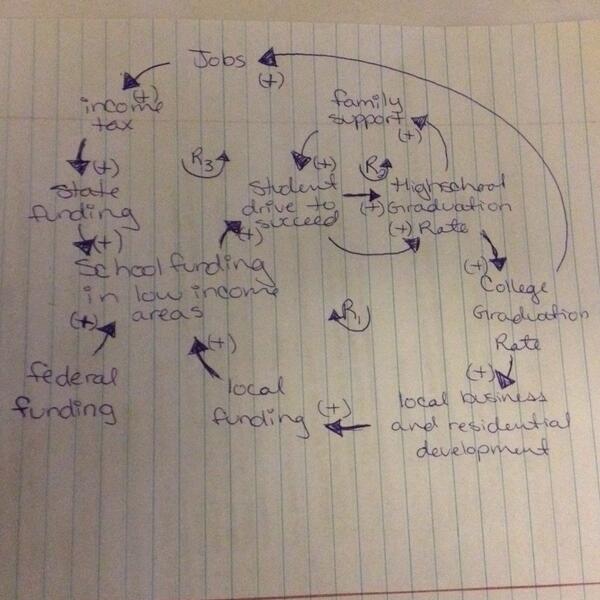 Jobs
(+)
(+)
income
tax
family
support
(+)
(+)
State
funding
R3
(+)
Student
drive to
succeed
R2
(+)
Highschool
Graduation
(+) Rate
(+)
School funding
in low income
areas
(+)
(+)
College
Graduation
Rate
R1
(+)
(+)
federal
funding
local
funding
(+)
(+)
local business
and residential
development